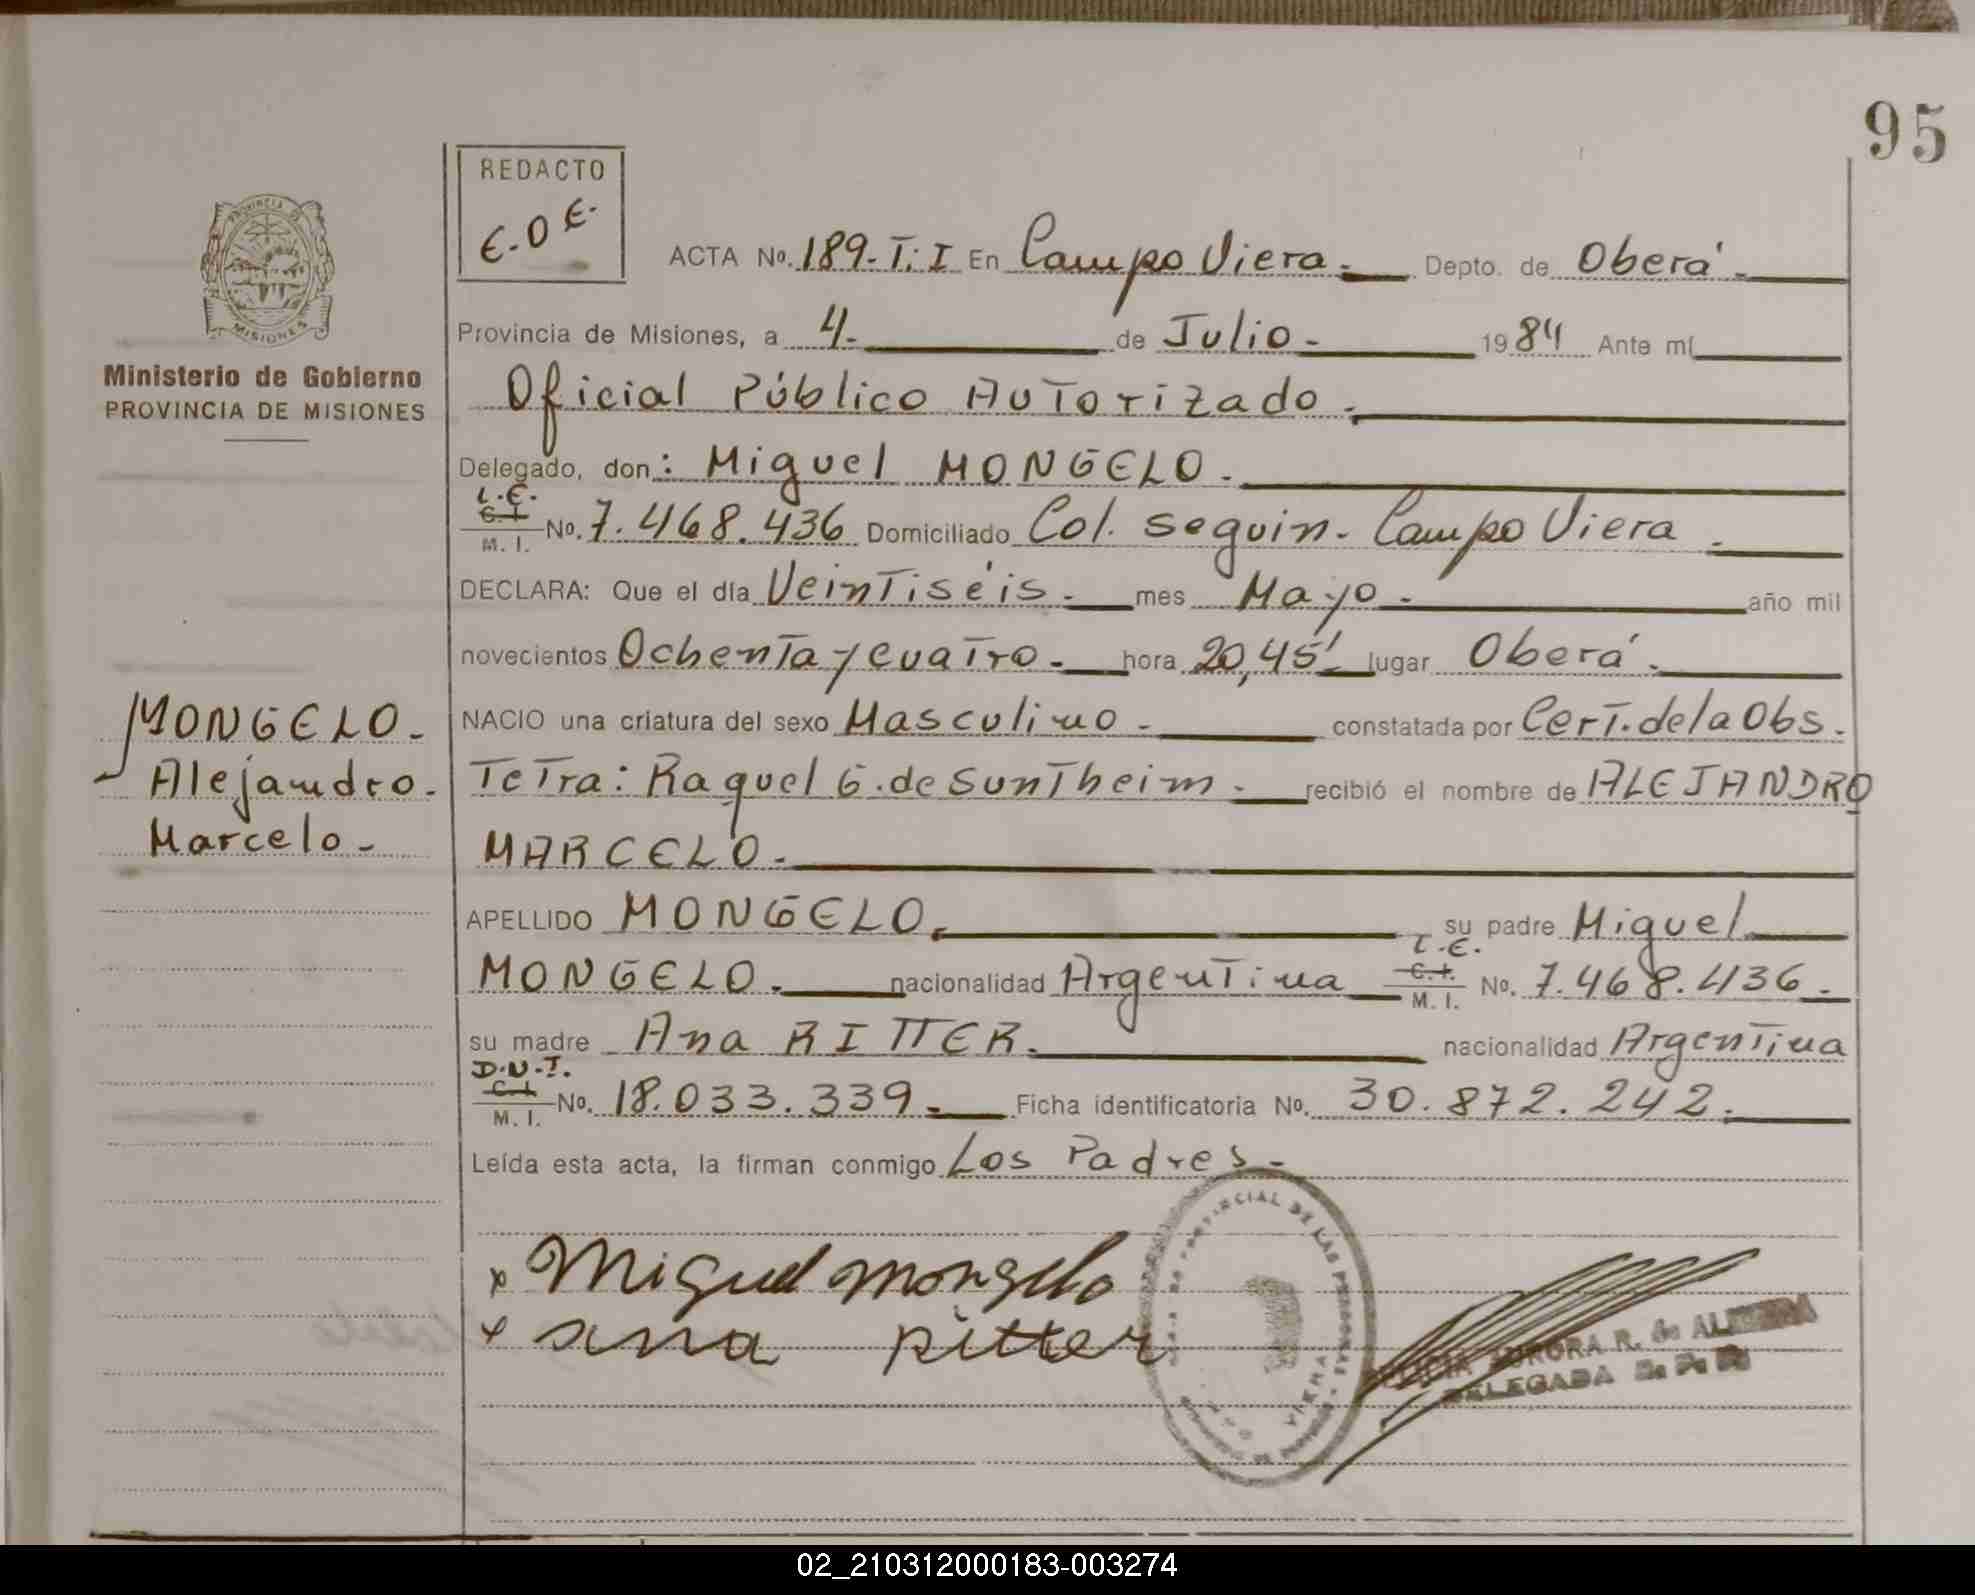 95
REDACTO
E.O.E.
ACTA No. 189-T: I En Campo Viera.- Depto. de Oberá.-
Provincia de Misiones, a 4.- de Julio.- 1984 Ante mí
Oficial Público Autorizado.
Delegado, don: Miguel MONGELO.
L.E.
C.I.
M. I. No. 7.468.436 Domiciliado Col. Seguin.- Campo Viera.
DECLARA: Que el día Veintiséis.- mes Mayo.- año mil
novecientos Ochenta y cuatro.- hora 20,45' lugar Oberá.-
NACIO una criatura del sexo Masculino.- constatada por Cert. de la Obs.
Tetra: Raquel G. de Suntheim.- recibió el nombre de ALEJANDRO
MARCELO.-
APELLIDO MONGELO. su padre Miguel
MONGELO.- nacionalidad Argentina L.E. C.I. M. I. No. 7.468.436.-
su madre Ana RITTER.- nacionalidad Argentina
D.N.I.
C.I.
M. I. No. 18.033.339.- Ficha identificatoria No. 30.872.242.
Leída esta acta, la firman conmigo Los Padres.-
x Miguel mongelo
x ana ritter
PROVINCIAL DE LAS PERSONAS
VIERA
AURORA R. de
DELEGADA
PROVINCIA DE
MISIONES
Ministerio de Gobierno
PROVINCIA DE MISIONES
MONGELO.-
Alejandro.-
Marcelo.-
02_210312000183-003274